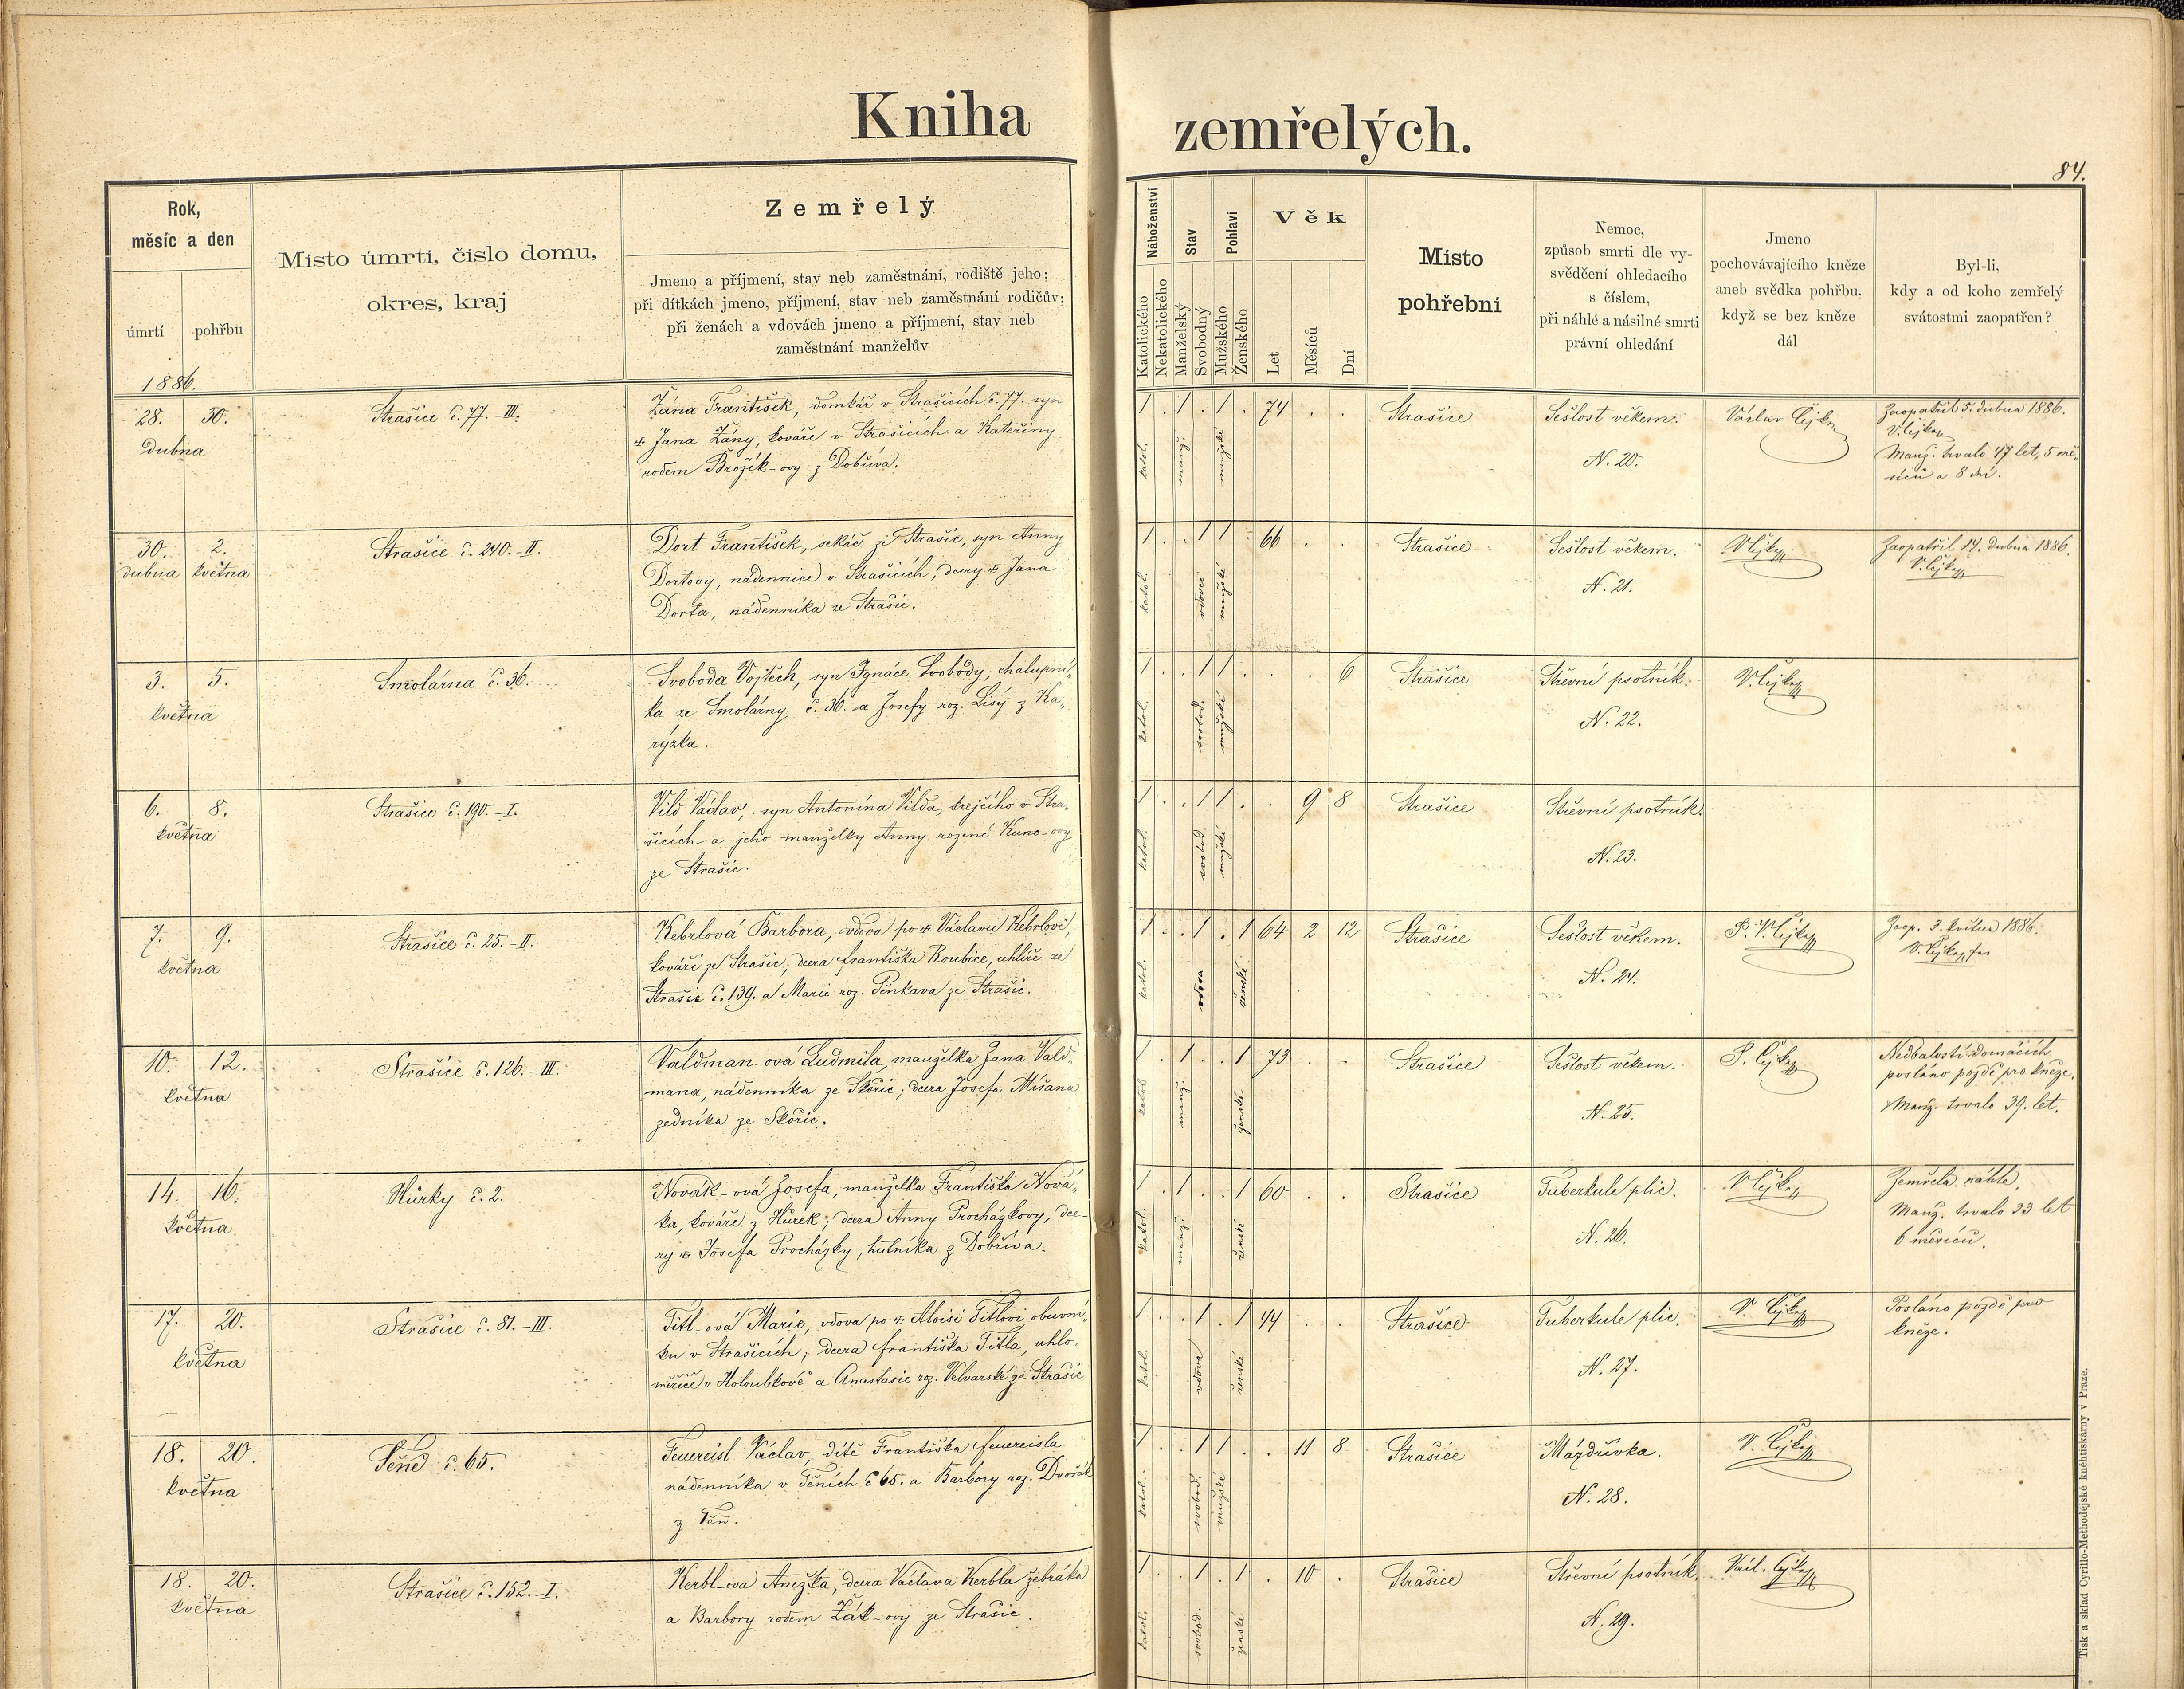 Kniha zemřelých.
84.
Rok,
měsíc a den
úmrtí
pohřbu
Místo úmrtí, číslo domu,
okres, kraj
Zemřelý
Jmeno a příjmení, stav neb zaměstnání, rodiště jeho;
při dítkách jmeno, příjmení, stav neb zaměstnání rodičův;
při ženách a vdovách jmeno a příjmení, stav neb
zaměstnání manželův
Náboženství
Katolického
Nekatolického
Stav
Manželský
Svobodný
Pohlaví
Mužského
Ženského
Věk
Let
Měsíců
Dní
Místo
pohřební
Nemoc,
způsob smrti dle vy-
svědčení ohledacího
s číslem,
při náhlé a násilné smrti
právní ohledání
Jmeno
pochovávajícího kněze
aneb svědka pohřbu,
když se bez kněze
dál
Byl-li,
kdy a od koho zemřelý
svátostmi zaopatřen?
1886.
28. 30.
dubna
Strašice č. 77.-III.
Žána František, domkář v Strašicích č. 77. syn
Jana Žány, kováře v Strašicích a Kateřiny
rodem Brožík-ovy z Dobříva.
1 . 1 . 1 . 74 . .
katol. manž. mužské
Strašice
Sešlost věkem.
N. 20.
Václav
Zaopatřil 5. dubna 1886.
Manž. trvalo 47 let, 5 mě-
síců a 8 dní.
30. 2.
dubna května
Strašice č. 240.-II.
Dort František, sekáč ze Strašic, syn Anny
Dortovy, nádennice v Strašicích, dcery Jana
Dorta, nádenníka ze Strašic.
1 . . 1 1 . 66 . .
katol. vdovec mužské
Strašice
Sešlost věkem.
N. 21.
Zaopatřil 14. dubna 1886.
3. 5.
května
Smolárna č. 36.
Svoboda Vojtěch, syn Ignáce Svobody, chalupní-
ka ze Smolárny č. 36. a Josefy roz. Lisý z Ka-
rýzka.
1 . . 1 1 . . . 6
katol. svobod. mužské
Strašice
Střevní psotník.
N. 22.
6. 8.
května
Strašice č. 190.-I.
Vild Václav, syn Antonína Vilda, krejčího v Stra-
šicích a jeho manželky Anny rozené Kunc-ovy
ze Strašic.
1 . . 1 1 . . 9 8
katol. svobod. mužské
Strašice
Střevní psotník.
N. 23.
7. 9.
května
Strašice č. 25.-II.
Kebrlová Barbora, vdova po Václavu Kebrlovi,
kováři ze Strašic; dcera Františka Roubice, uhlíře ze
Strašic č. 139. a Marie roz. Pěnkava ze Strašic.
1 . . 1 . 1 64 2 12
katol. vdova ženské
Strašice
Sešlost věkem.
N. 24.
Zaop. 3. května 1886.
10. 12.
května
Strašice č. 126.-III.
Valdman-ová Ludmila, manželka Jana Vald-
mana, nádenníka ze Skořic; dcera Josefa Míšana
zedníka ze Skořic.
1 . 1 . . 1 73 . .
katol. manž. ženské
Strašice
Sešlost věkem.
N. 25.
Nedbalostí domácích
posláno pozdě pro kněze.
Manž. trvalo 39. let.
14. 16.
května
Hůrky č. 2.
Novák-ová Josefa, manželka Františka Nová-
ka, kováře z Hůrek; dcera Anny Procházkovy, dce-
ry Josefa Procházky, hutníka z Dobříva.
1 . 1 . . 1 60 . .
katol. manž. ženské
Strašice
Tuberkule plic.
N. 26.
Zemřela náhle.
Manž. trvalo 33 let
6 měsíců.
17. 20.
května
Strašice č. 81.-III.
Titl-ová Marie, vdova po Aloisi Titlovi, obuvní-
ku v Strašicích; dcera Františka Titla, uhlo-
měřiče v Holoubkově a Anastasie roz. Velvarské ze Strašic.
1 . . 1 . 1 44 . .
katol. vdova ženské
Strašice
Tuberkule plic.
N. 27.
Posláno pozdě pro
kněze.
18. 20.
května
Těně č. 65.
Feuereisl Václav, dítě Františka Feuereisla
nádenníka v Těních č 65. a Barbory roz. Dvořák
z Těň.
1 . . 1 1 . . 11 8
katol. svobod. mužské
Strašice
Mázdřivka.
N. 28.
18. 20.
května
Strašice č. 152.-I.
Kerbl-ova Anežka, dcera Václava Kerbla žebráka
a Barbory rodem Žák-ovy ze Strašic.
1 . . 1 . 1 . 10 .
katol. svobod. ženské
Strašice
Střevní psotník.
N. 29.
Tisk a sklad Cyrillo-Methodějské knihtiskárny v Praze.